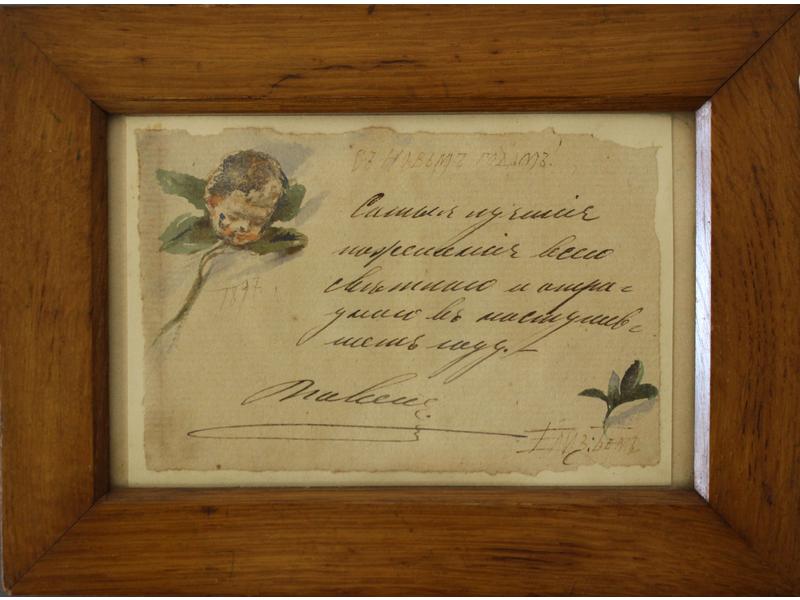 въ новымъ годомъ!
Самыя лучшія
пожеланія всего
свѣтлаго и отра-
днаго въ наступив-
шемъ году.
189